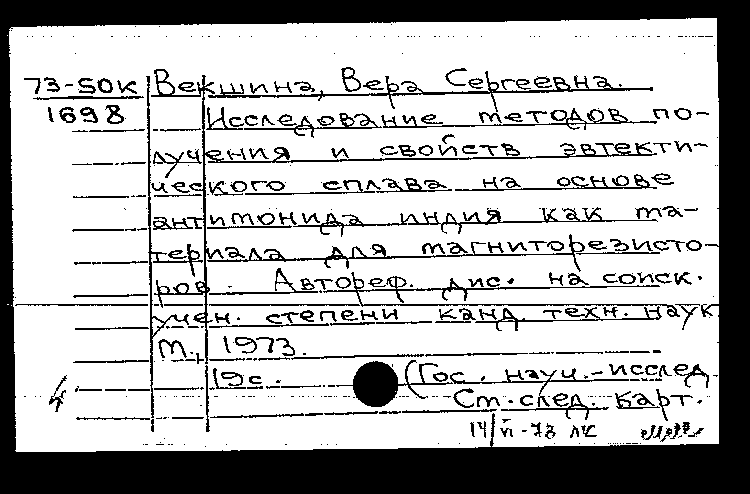 73-50К Векшина, Вера Сергеевна.
1698 Исследование методов по-
лучения и свойств эвтекти-
ческого сплава на основе
антимонида индия как ма-
териала для магниторезисто-
ров. Автореф. дис. на соиск.
учен. степени канд. техн. наук
М., 1973.
19 с. (Гос. науч.-исслед.
4 См. след. карт.
14/VI-73